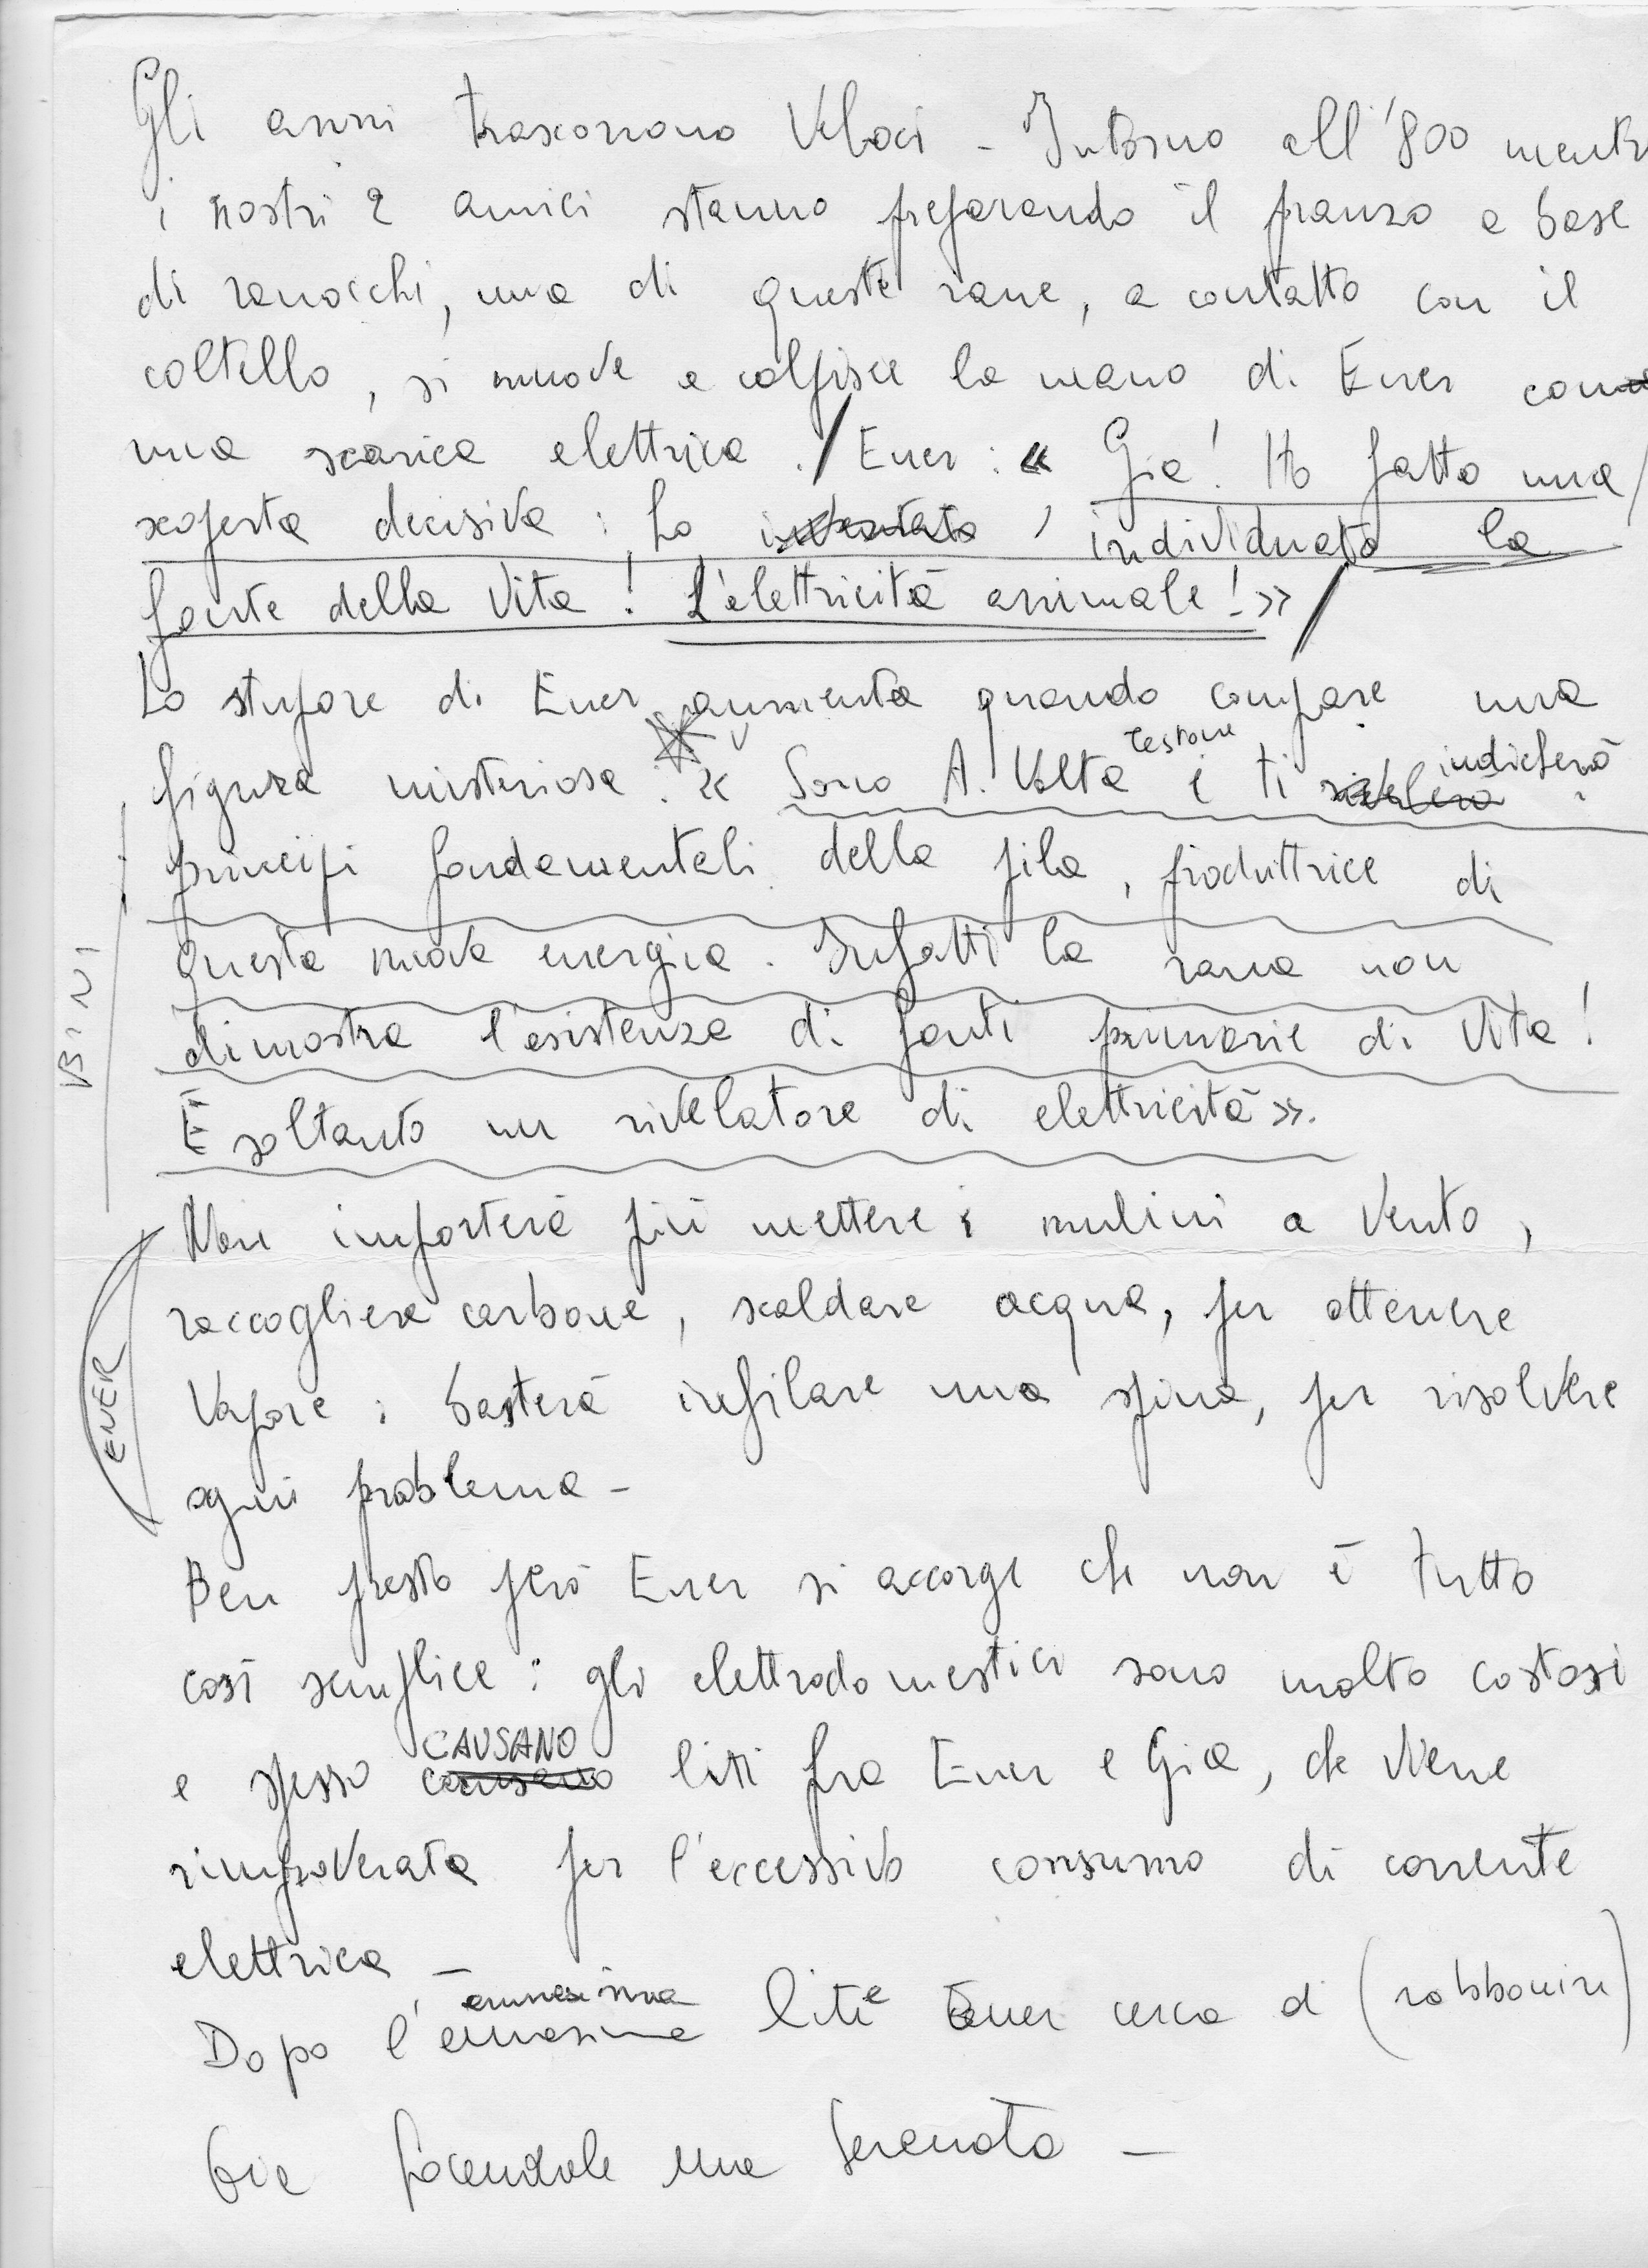 Gli anni trascorrono veloci - Intorno all'800 mentr
i nostri 2 amici stanno preparando il pranzo a base
di ranocchi, una di queste rane, a contatto con il
coltello, si muove e colpisce la mano di Ener con
una scarica elettrica. / Ener: « Gia! Ho fatto una /
scoperta decisiva: ho inventato individuato la
fonte della vita! L'elettricità animale! » /
Lo stupore di Ener aumenta quando compare una
figura misteriosa: « Sono A. Volta testone e ti rivelerò indicherò
principi fondamentali della pila, produttrice di
questa nuova energia. Infatti la rana non
dimostra l'esistenza di fonti primarie di vita!
È soltanto un rivelatore di elettricità ».
Non importerà più mettere i mulini a vento,
raccogliere carbone, scaldare acqua, per ottenere
vapore: basterà infilare una spina, per risolvere
ogni problema -
Ben presto però Ener si accorge che non è tutto
così semplice: gli elettrodomestici sono molto costosi
e spesso CAUSANO liti fra Ener e Gia, che viene
rimproverata per l'eccessivo consumo di corrente
elettrica -
Dopo l'ennesima lite Ener cerca di (rabbonire)
Gia facendole una serenata -
ENER